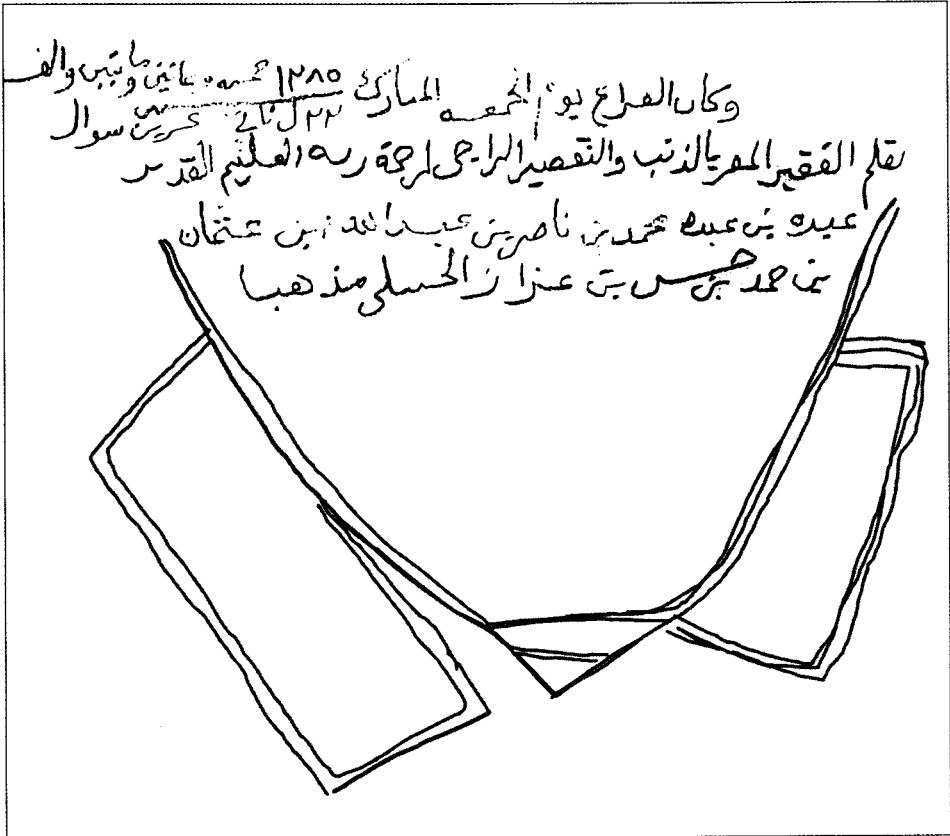 وكان الفراغ يوم الجمعه المبارك ١٢٨٥ خمسه وثمانين ومايتين والف
٢٢ شوال
بقلم الفقير المقر بالذنب والتقصير الراجي لرحمة ربه العليم القدير
عبده بن عبده محمد بن ناصر بن عبد الله بن عثمان
بن حمد بن حسن بن الحنبلي مذهبا